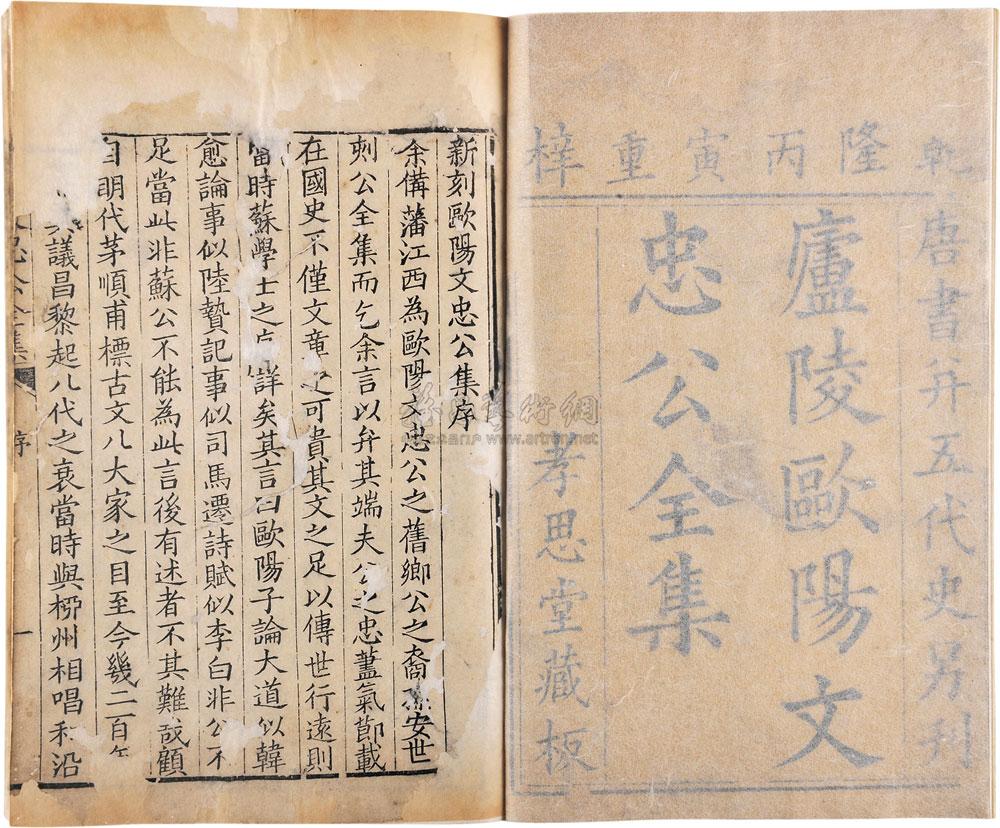 乾隆丙寅重梓
唐書並五代史另刊
廬陵歐陽文
忠公全集
孝思堂藏板
新刻歐陽文忠公集序
余備藩江西為歐陽文忠公之舊鄉公之裔孫安世
刺公全集而乞余言以弁其端夫公之忠藎氣節載
在國史不僅文章之可貴其文之足以傳世行遠則
當時蘇學士之序詳矣其言曰歐陽子論大道似韓
愈論事似陸贄記事似司馬遷詩賦似李白非公不
足當此非蘇公不能為此言後有述者不其難哉顧
自明代茅順甫標古文八大家之目至今幾二百年
議昌黎起八代之衰當時與柳州相唱和沿
忠公全集
序
一
www.artron.net